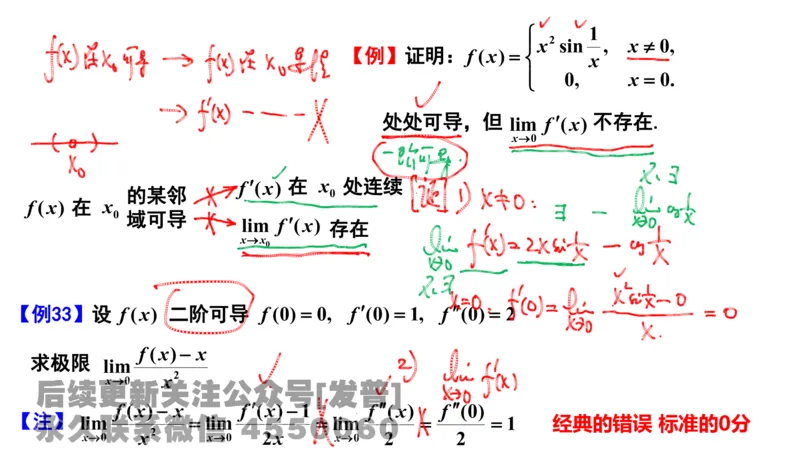 f(x)在x₀可导 → f(x)在x₀某邻
→ f′(x) - - - - ✗
x₀
【例】证明：f(x) = { x² sin 1/x, x ≠ 0,
0, x = 0.
处处可导，但 lim x→0 f′(x) 不存在.
f(x) 在 x₀ 的某邻域可导
f′(x) 在 x₀ 处连续
lim x→x₀ f′(x) 存在
[证] 1) x≠0:
f′(x) = 2x sin 1/x − cos 1/x
x=0, f′(0) = lim x→0 (x² sin 1/x − 0)/x = 0
不∃
∃ − lim x→0 cos 1/x
lim x→0
不∃
2) lim x→0 f′(x)
【例33】设 f(x) 二阶可导 f(0) = 0, f′(0) = 1, f″(0) = 2
求极限 lim x→0 (f(x) − x)/x²
【注】 lim x→0 (f(x) − x)/x² = lim x→0 (f′(x) − 1)/2x = lim x→0 f″(x)/2 = f″(0)/2 = 1
经典的错误 标准的0分
后续更新关注公众号[发普]
永久联系微信 4550060